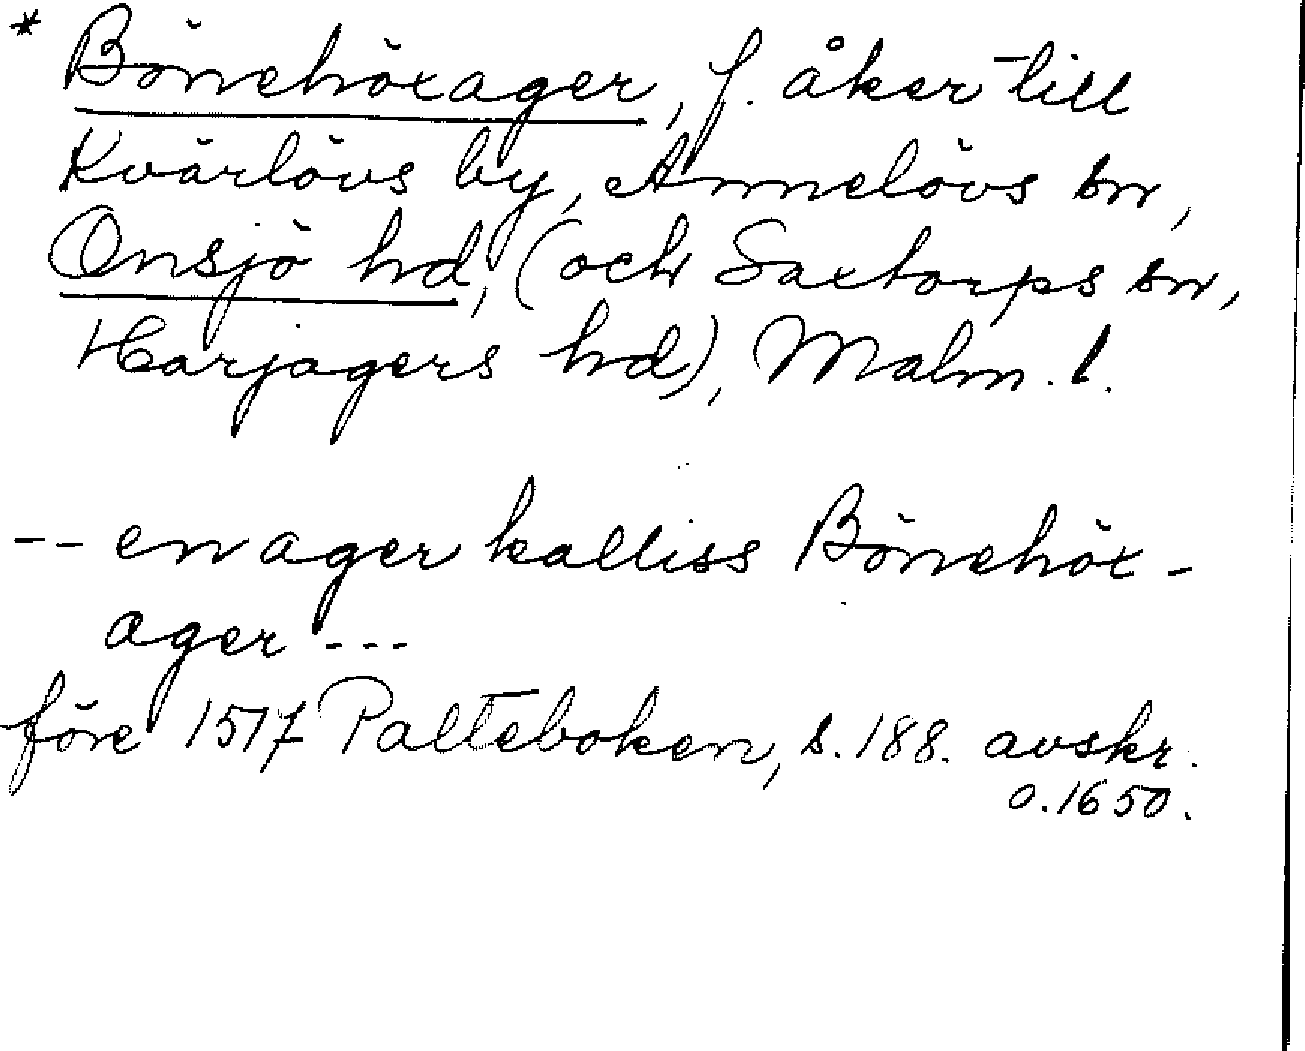 * Bönehöxager, f. åker till
Kvärlövs by, Annelövs sn,
Onsjö hd, (och Saxtorps sn,
Harjagers hd), Malm. l.
-- en ager kalliss Bönehöx-
ager ---
före 1517 Palteboken, s. 188. avskr.
o. 1650.